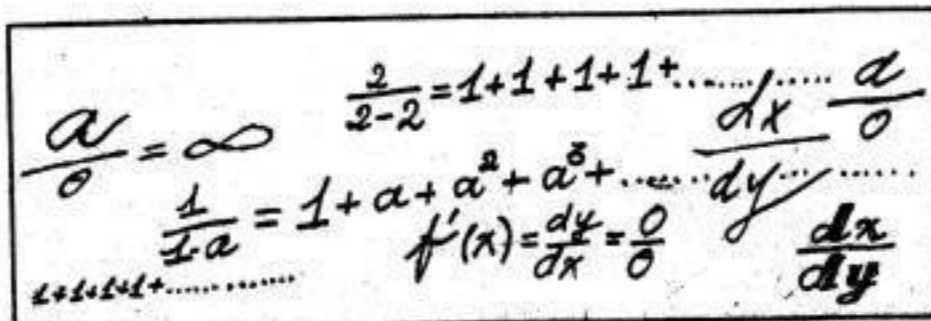 2/(2-2) = 1+1+1+1+........... a/0
a/0 = ∞
dx/dy
1/(1-a) = 1+a+a²+a³+............
f'(x) = dy/dx = 0/0
dx/dy
1+1+1+1+............